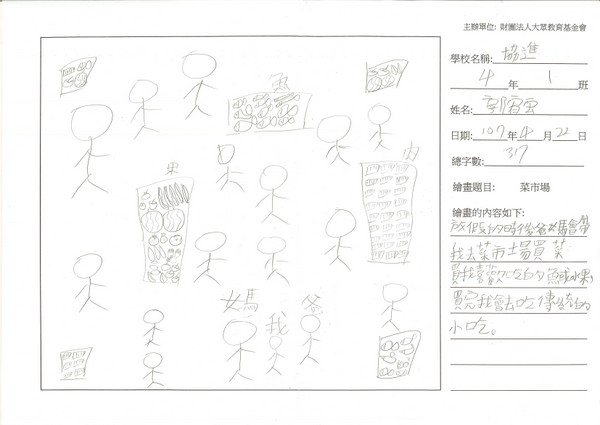 主辦單位: 財團法人大眾教育基金會
學校名稱: 協進
4 年 1 班
姓名:
日期: 107 年 4 月 22 日
總字數: 317
繪畫題目: 菜市場
繪畫的內容如下:
放假的時後爸媽會帶
我去菜市場買菜
買我喜歡吃的魚或水果
買完我會去吃傳統的
小吃。
魚
肉
果
媽
爸
我